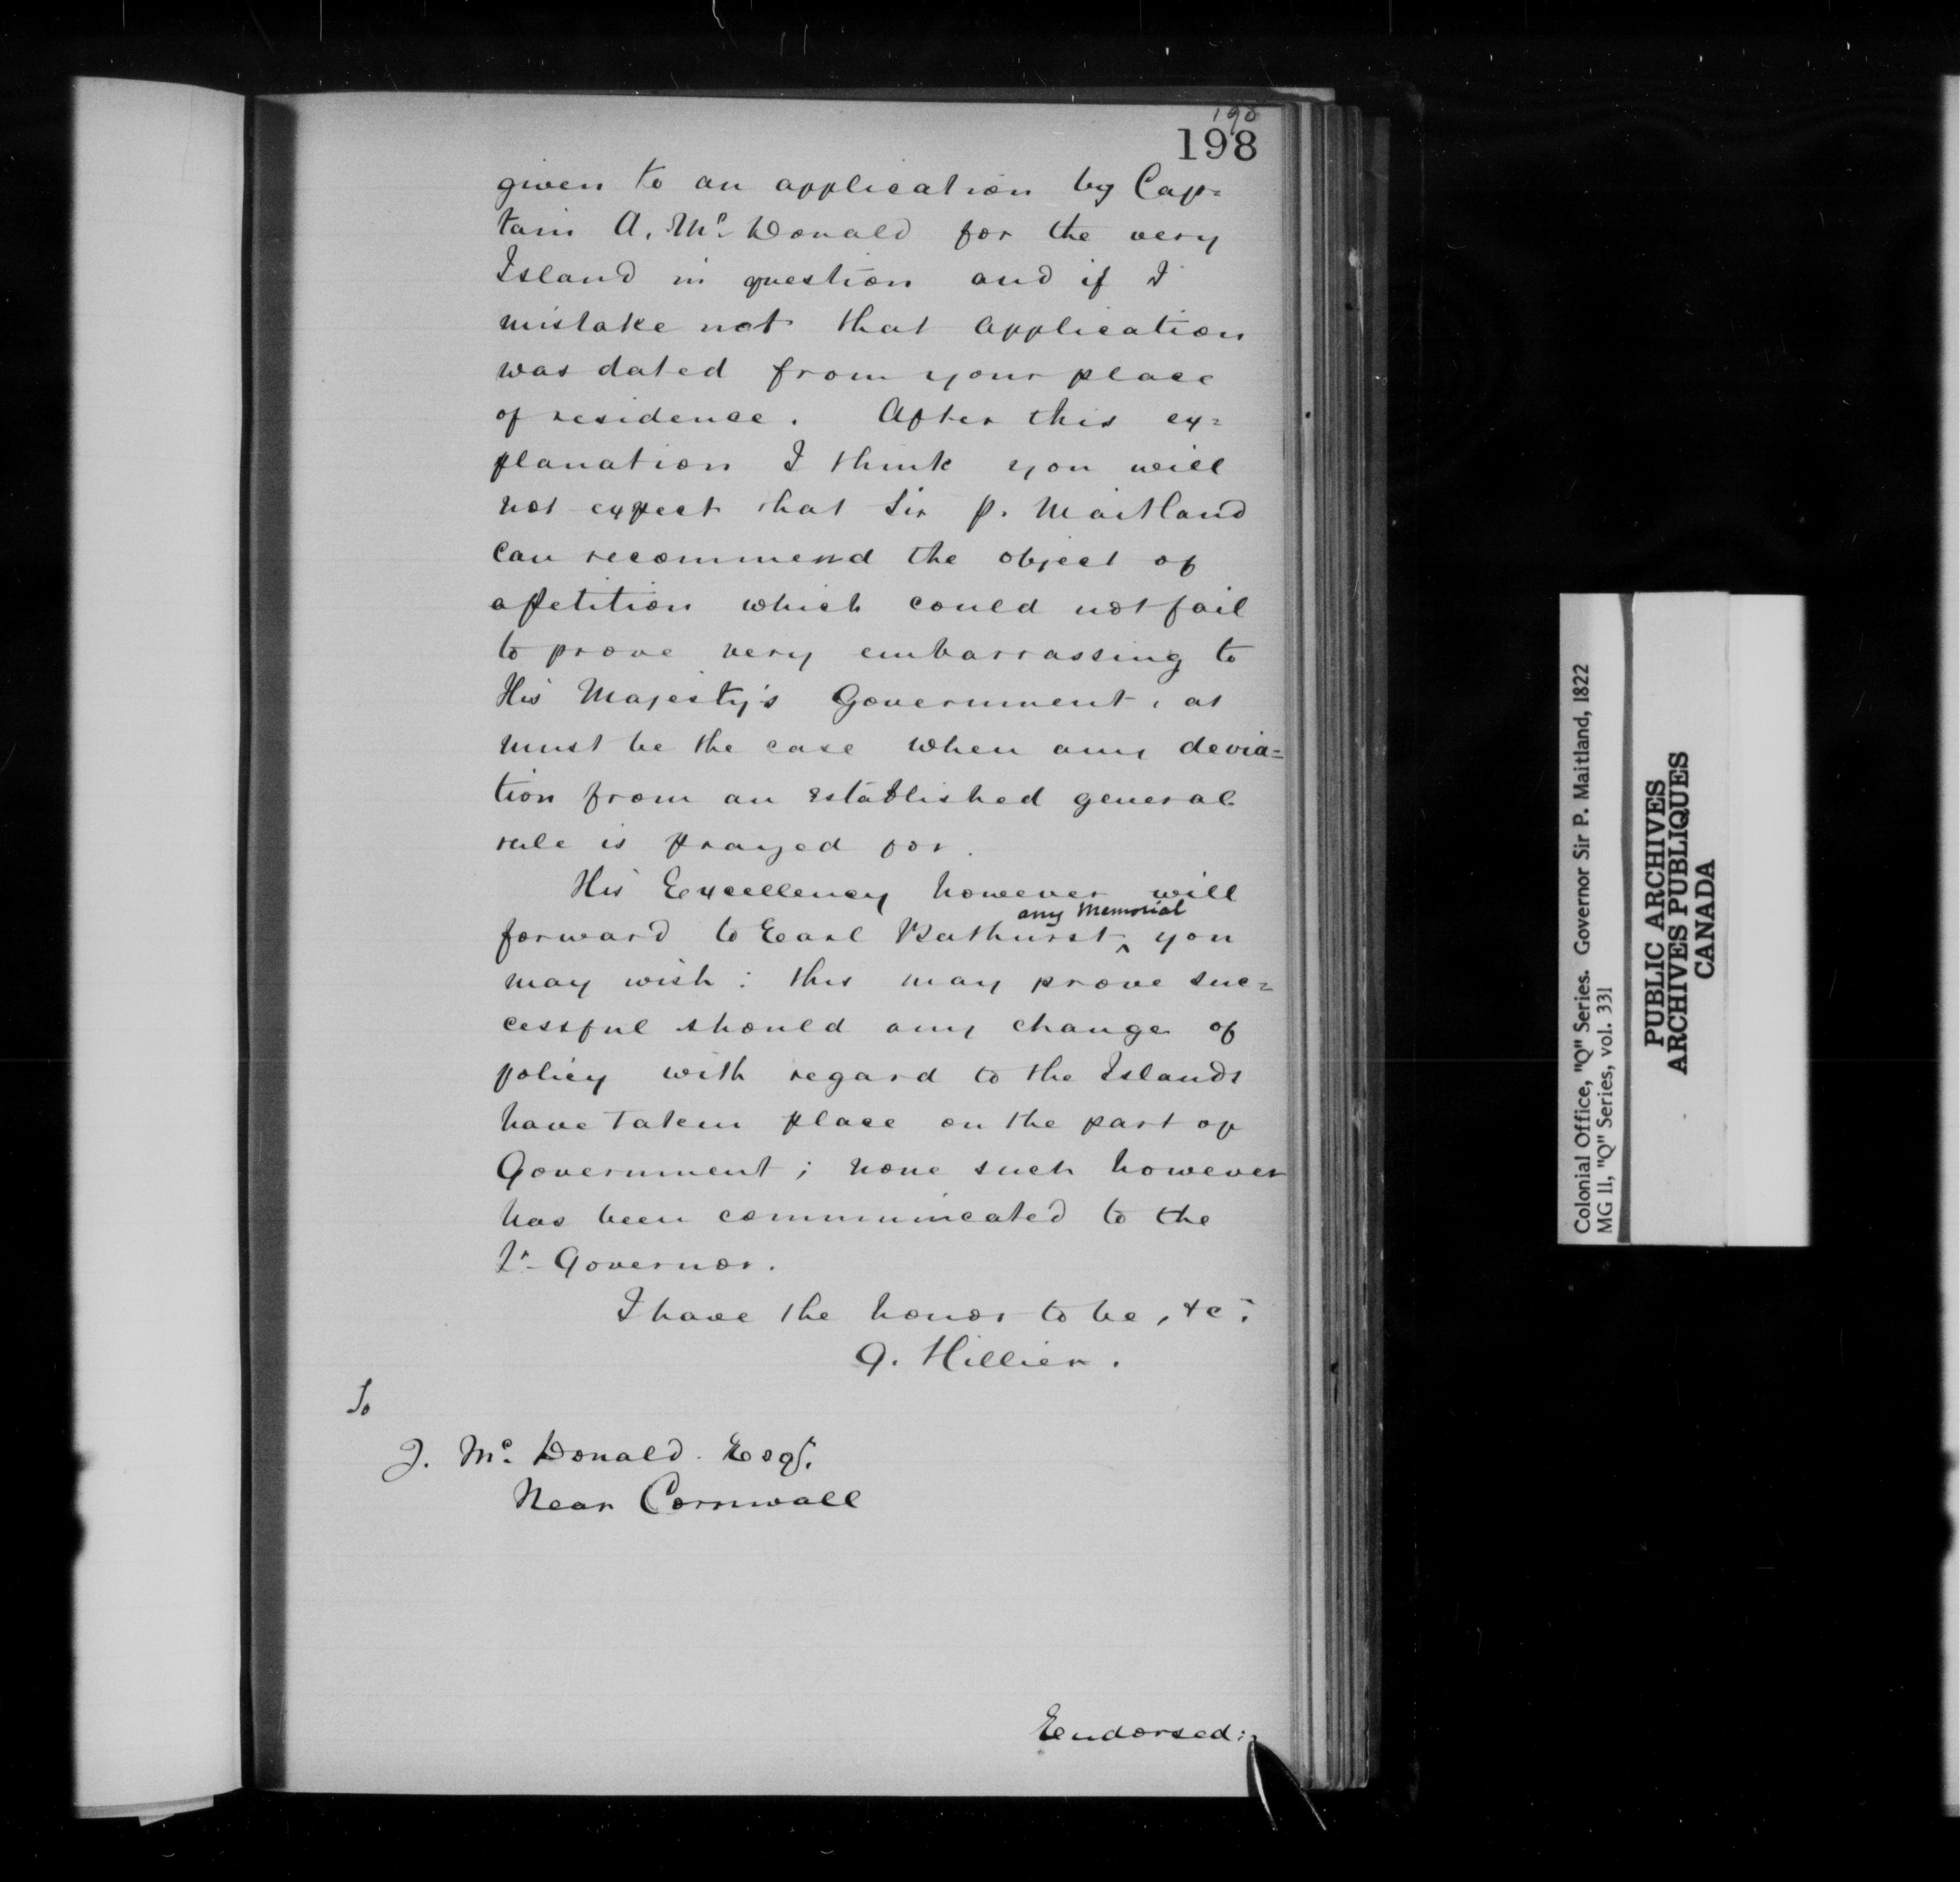 198
198
given to an application by Cap=
tain A. Mc Donald for the very
Island in question and if I
mistake not that application
was dated from your place
of residence. After this ex=
planation I think you will
not expect that Sir P. Maitland
can recommend the object of
a petition which could not fail
to prove very embarrassing to
His Majesty's Government, as
must be the case when any devia=
tion from an established general
rule is prayed for.
His Excellency however will
any Memorial
forward to Earl Bathurst ^ you
may wish: this may prove suc=
cessful should any change of
policy with regard to the Islands
have taken place on the part of
Government; none such however
has been communicated to the
Lt. Governor.
I have the honor to be, &c.
G. Hillier.
To
J. Mc Donald Esqr.
Near Cornwall
Endorsed:
Colonial Office, "Q" Series. Governor Sir P. Maitland, 1822
MG 11, "Q" Series, vol. 331
PUBLIC ARCHIVES
ARCHIVES PUBLIQUES
CANADA